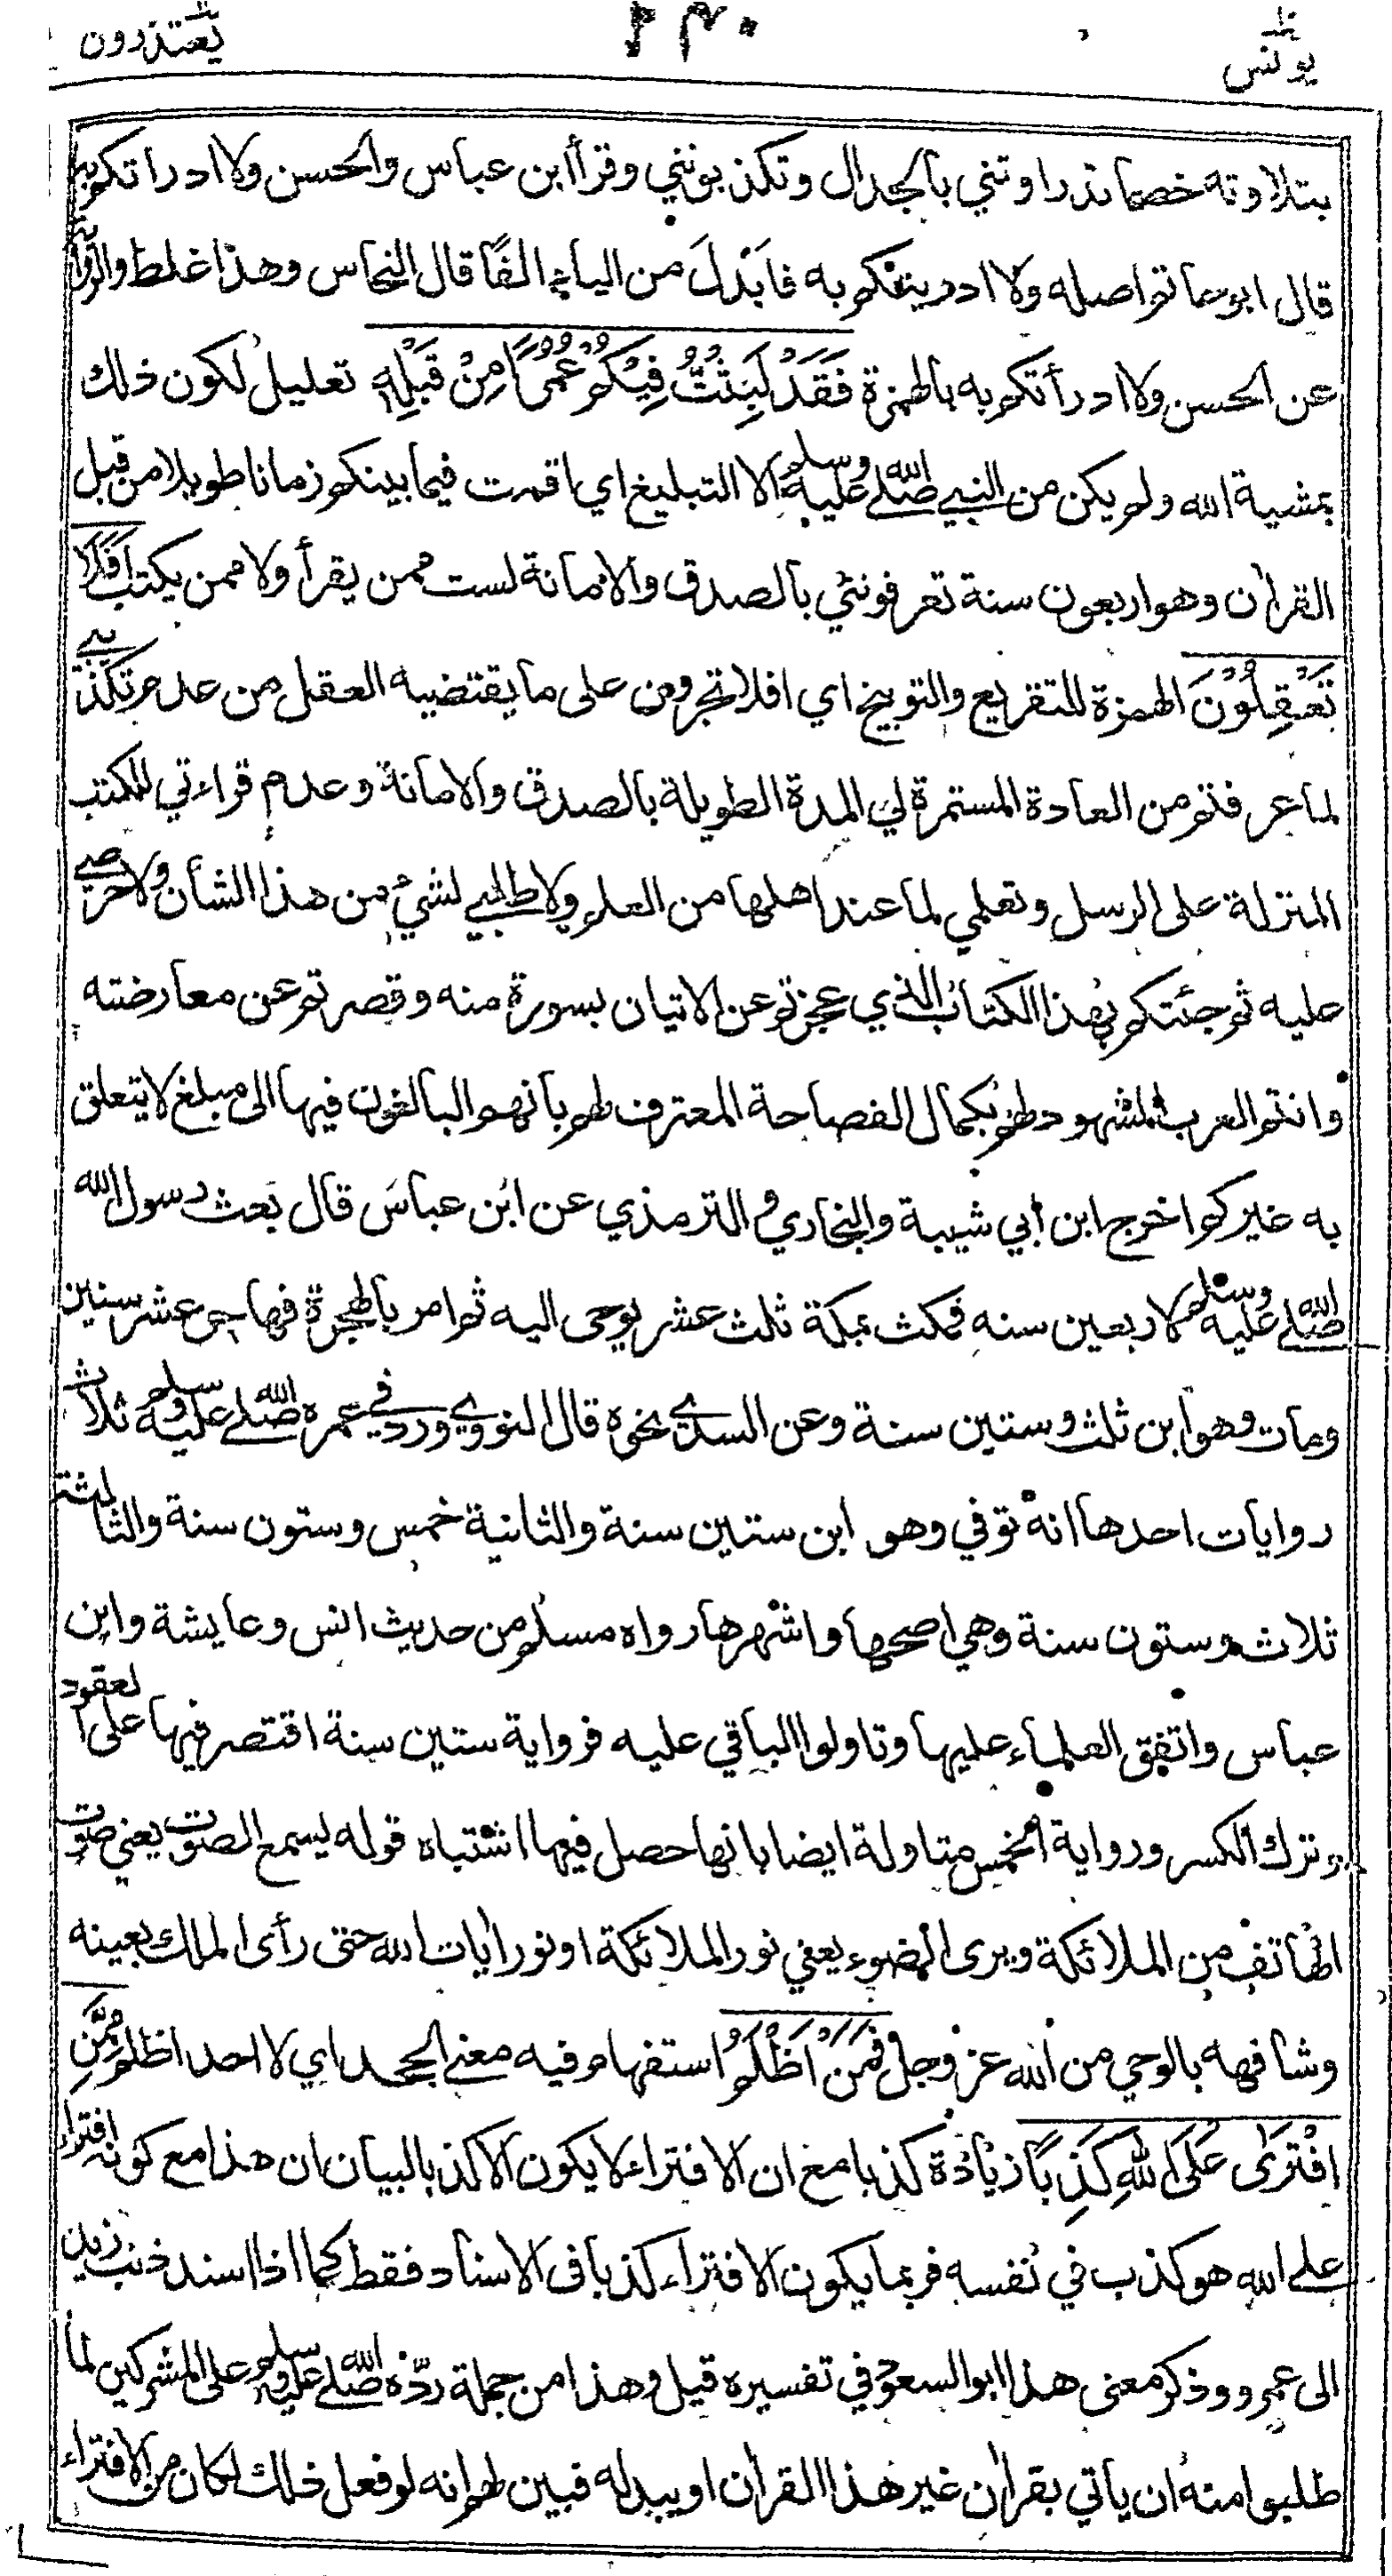 يونس ٢٤٠ يعتذرون
بتلاوته خصماء تدراونني بالجدال وتكذبونني وقرأ ابن عباس والحسن ولا ادراتكم به
قال ابو حاتم اصله ولا ادريتكم به فابدل من الياء الفًا قال النحاس وهذا غلط والرواية
عن الحسن ولا ادرأتكم به بالهمزة فَقَدْ لَبِثْتُ فِيكُمْ عُمُرًا مِنْ قَبْلِهِ تعليل لكون ذلك
بمشية الله ولم يكن من النبي صلى الله عليه وسلم الا التبليغ اي اقمت فيما بينكم زمانا طويلا من قبل
القرآن وهو اربعون سنة تعرفونني بالصدق والامانة لست ممن يقرأ ولا ممن يكتب اَفَلَا
تَعْقِلُوْنَ الهمزة للتقريع والتوبيخ اي افلا تجرون على ما يقتضيه العقل من عدم تكذيبي
لما عرفتم من العادة المستمرة لي المدة الطويلة بالصدق والامانة وعدم قراءتي للكتب
المنزلة على الرسل وتعلمي لما عند اهلها من العلم ولا طلبي لشيء من هذا الشأن ولا حرصي
عليه ثم جئتكم بهذا الكتاب الذي عجزتم عن الاتيان بسورة منه وقصرتم عن معارضته
وانتم العرب المشهود لهم بكمال الفصاحة المعترف لهم بانهم البالغون فيها الى مبلغ لا يتعلق
به غيركم اخرج ابن أبي شيبة والبخاري والترمذي عن ابن عباس قال بعث رسول الله
صلى الله عليه وسلم لاربعين سنه فمكث بمكة ثلث عشر يوحى اليه ثم امر بالهجرة فهاجر عشر سنين
ومات وهو ابن ثلث وستين سنة وعن السدي نحوه قال النووي ورد في عمره صلى الله عليه وسلم ثلاث
روايات احدها انه توفي وهو ابن ستين سنة والثانية خمس وستون سنة والثالثة
ثلاث وستون سنة وهي اصحها واشهرها رواه مسلم من حديث انس وعايشة وابن
عباس واتفق العلماء عليها وتاولوا الباقي عليه فرواية ستين سنة اقتصر فيها على العقود
وترك الكسر ورواية الخمس متاولة ايضا بانها حصل فيها اشتباه قوله يسمع الصوت يعني صوت
الهاتف من الملائكة ويرى الضوء يعني نور الملائكة او نور ايات الله حتى رأى الملك بعينه
وشافهه بالوحي من الله عز وجل فَمَنْ اَظْلَمُ استفهام فيه معنى الجحد اي لا احد اظلم مِمَّنِ
افْتَرَى عَلَى اللهِ كَذِبًا زيادة كذبا مع ان الافتراء لا يكون الا كذبا لبيان ان هذا مع كونه افتراء
على الله هو كذب في نفسه فربما يكون الافتراء كذبا في الاسناد فقط كما اذا اسند ذنب زيد
الى عمرو وذكر معنى هذا ابو السعود في تفسيره قيل وهذا من جملة ردّه صلى الله عليه وسلم على المشركين لما
طلبوا منه ان ياتي بقرآن غير هذا القرآن او يبدله فبين لهم انه لو فعل ذلك لكان من الافتراء